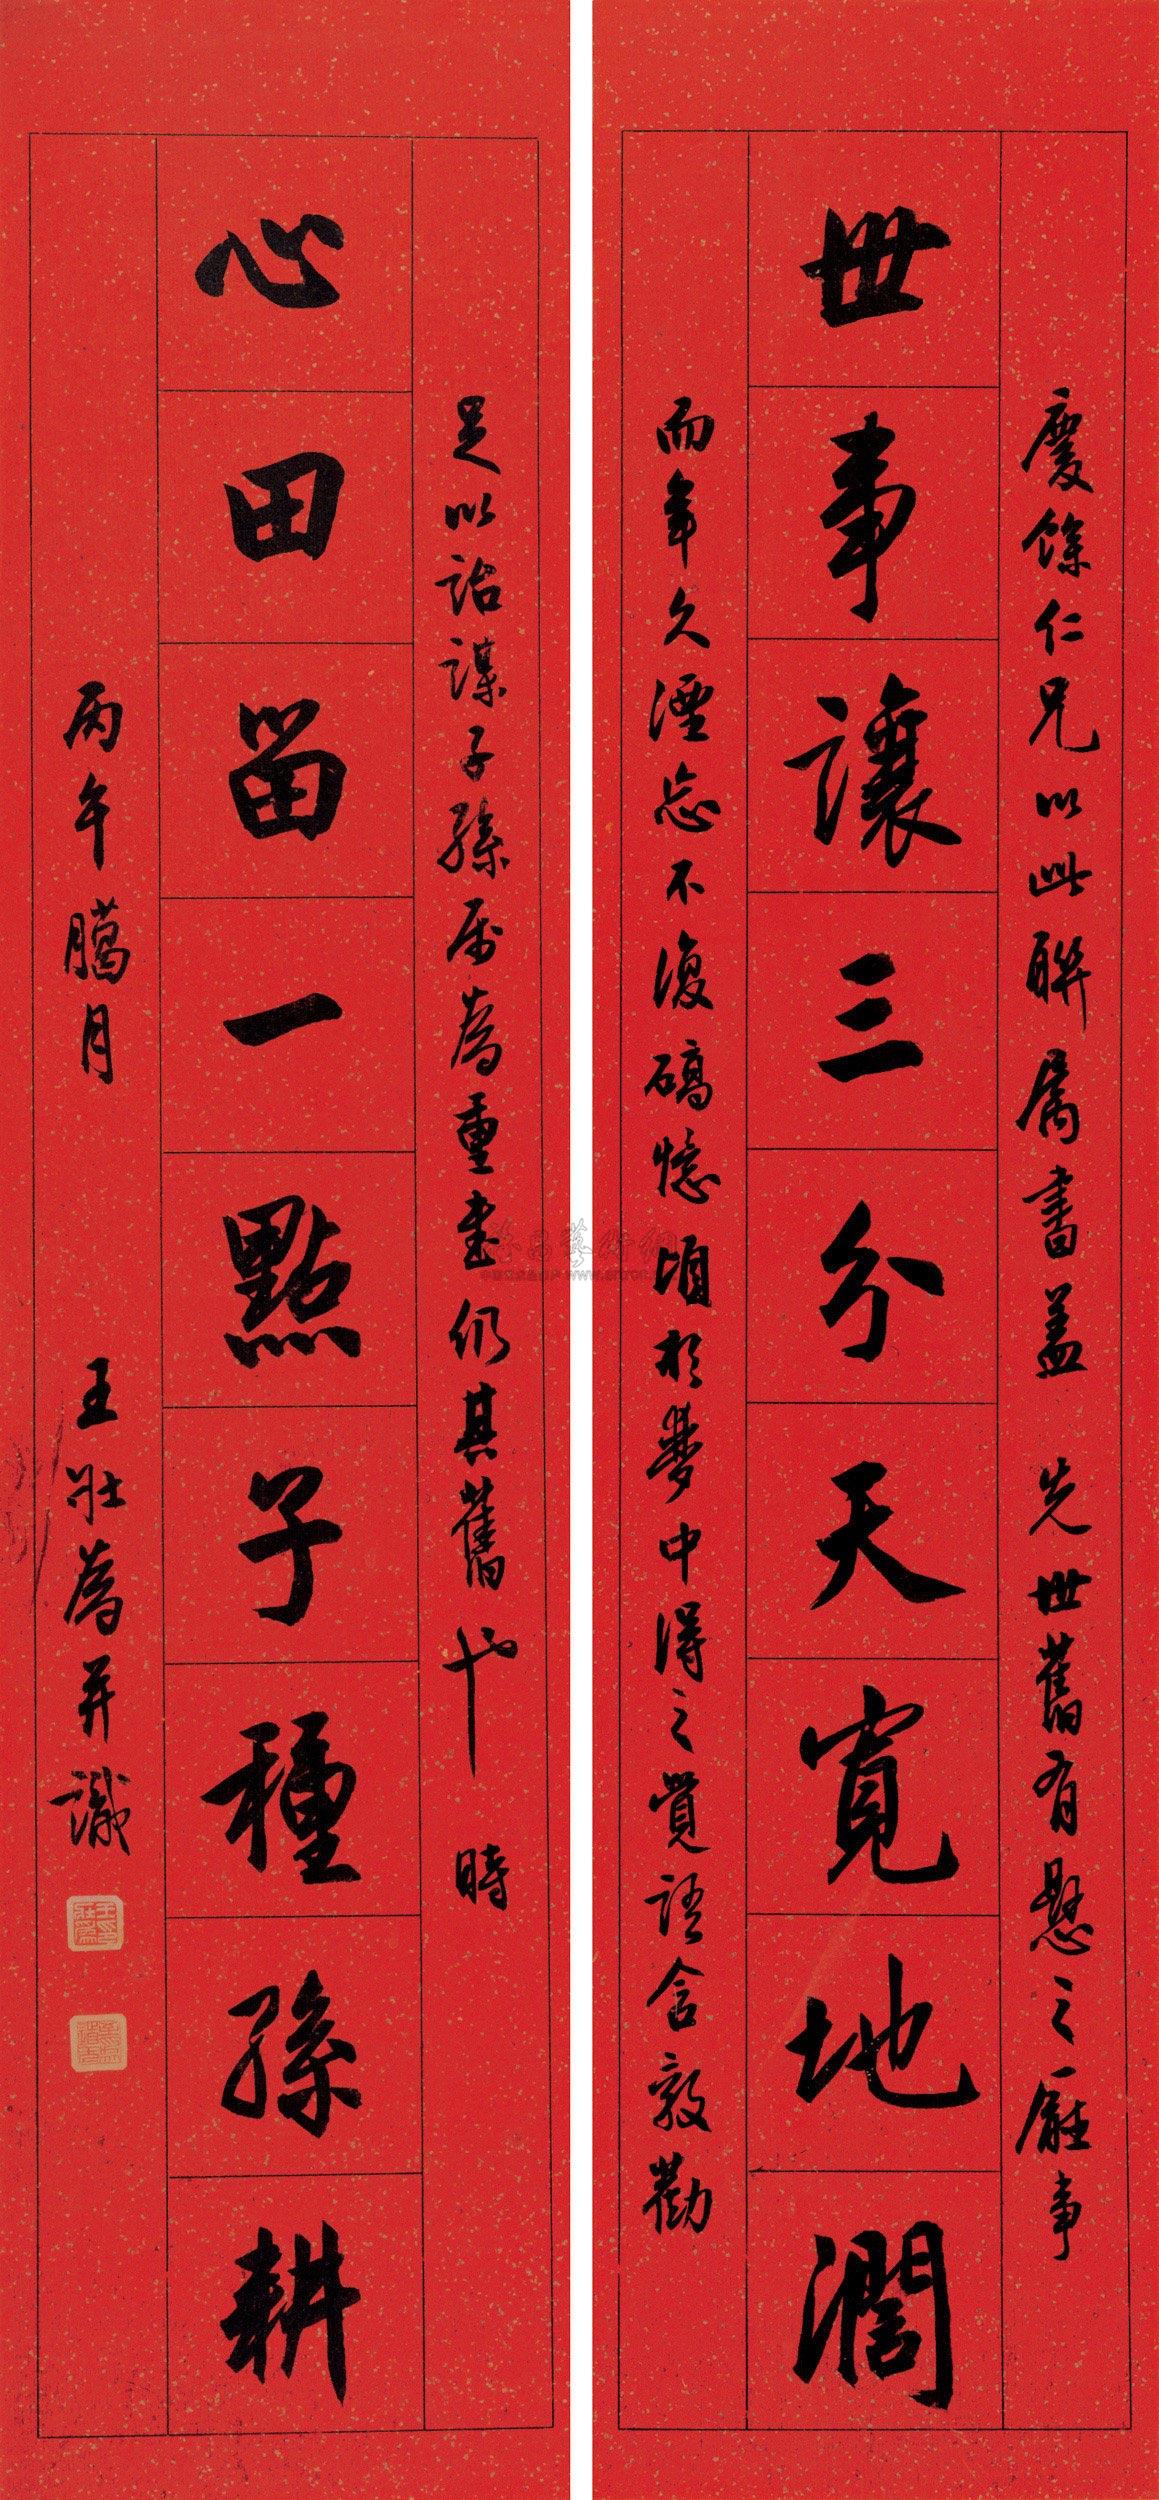 慶餘仁兄以此聯屬書蓋 先世舊有懸之廳事
世事讓三分天寬地濶
而年久湮忘不復碻憶頃於夢中得之覺語含敦勸
足以詒謀子孫屬為重書仍其舊也 時
心田留一點子種孫耕
丙午臈月 王壯為并識
王壯為印